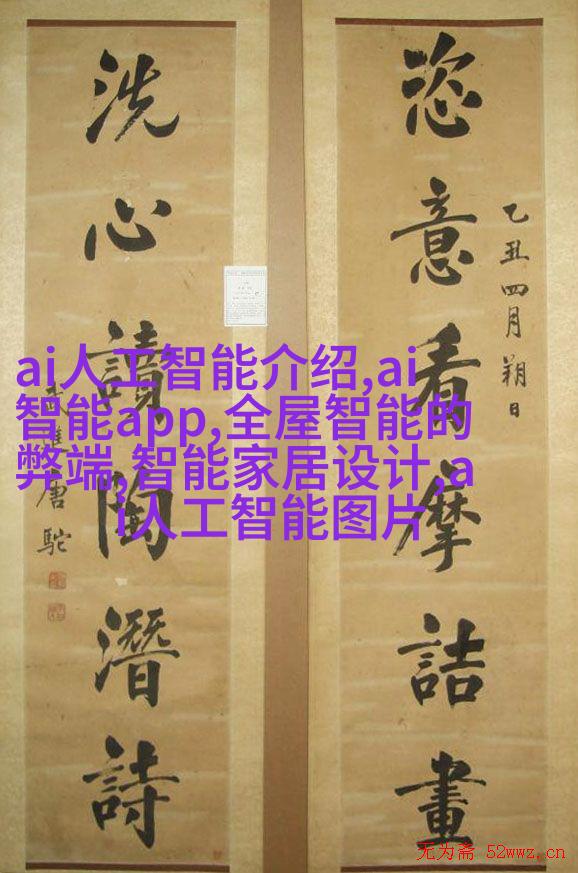 恣意看摩詰畫
乙丑四月朔日
洗心讀陶潛詩
武進唐駝
ai人工智能介绍,ai
智能app,全屋智能的
弊端,智能家居设计,a
i人工智能图片
无为斋 52wwz.cn